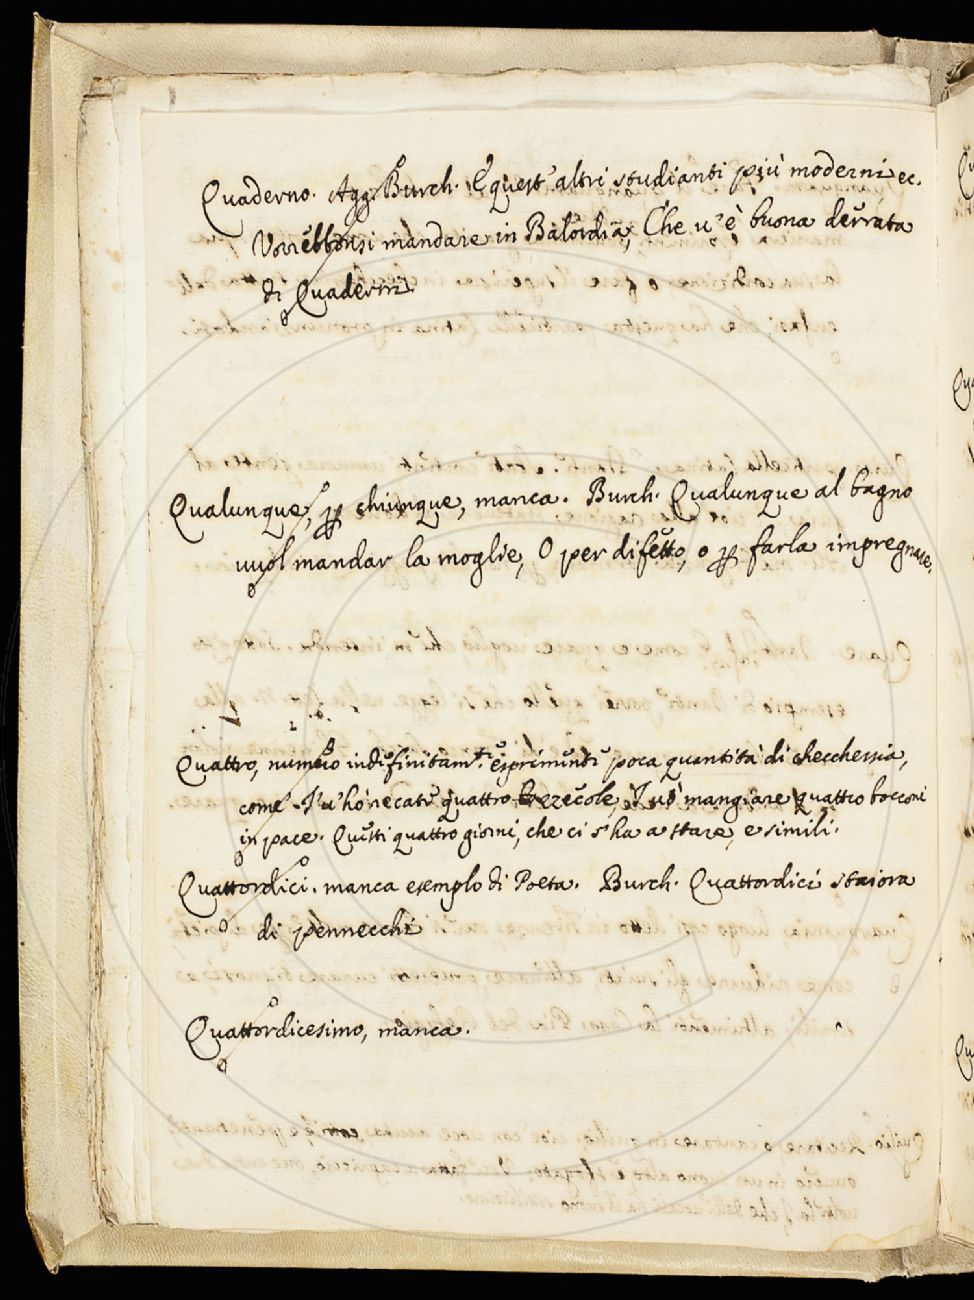 Quaderno. Agg. Burch. E quest' altri studianti più moderni ec.
Vorrebbonsi mandare in Balordia, Che v'è buona derrata
di Quaderni.
Qualunque, p chiunque, manca. Burch. Qualunque al bagno
vuol mandar la moglie, O per difetto, o p farla impregnare.
Quattro, numero indifinitam.te esprimente poca quantità di checchessia,
come. I' v'hò recate quattro Frezecole, I vò mangiare quattro bocconi
in pace. Questi quattro giorni, che ci s'ha a stare, e simili.
Quattordici. manca esemplo di Poeta. Burch. Quattordici staiora
di pennecchi
Quattordicesimo, manca.